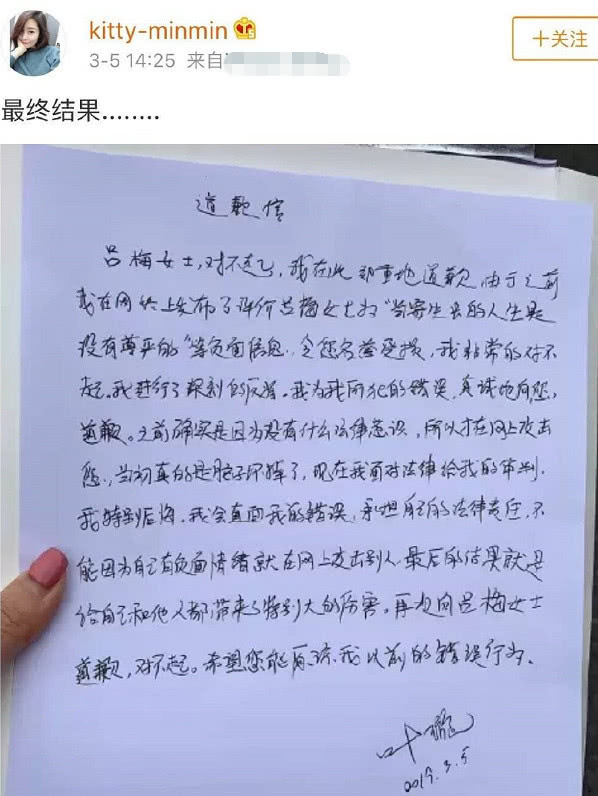 kitty-minmin
3-5 14:25 来自
+关注
最终结果........
道歉信
吕梅女士,对不起,我在此郑重地道歉 由于之前
我在网络上发布了评价吕梅女士为"当寄生虫的人生是
没有尊严的"等负面信息,令您名誉受损,我非常的对不
起.我进行了深刻的反省.我为我所犯的错误,真诚地向您,
道歉。之前确实是因为没有什么法律意识,所以才在网上攻击
您,当初真的是脑子坏掉了,现在我面对法律给我的审判,
我特别后悔.我会直面我的错误,承担自己的法律责任,不
能因为自己有负面情绪就在网上攻击别人.最后的结果就是
给自己和他人都带来了特别大的伤害。再次向吕梅女士
道歉,对不起。希望您能原谅我以前的错误行为.
叶璇
2019.3.5